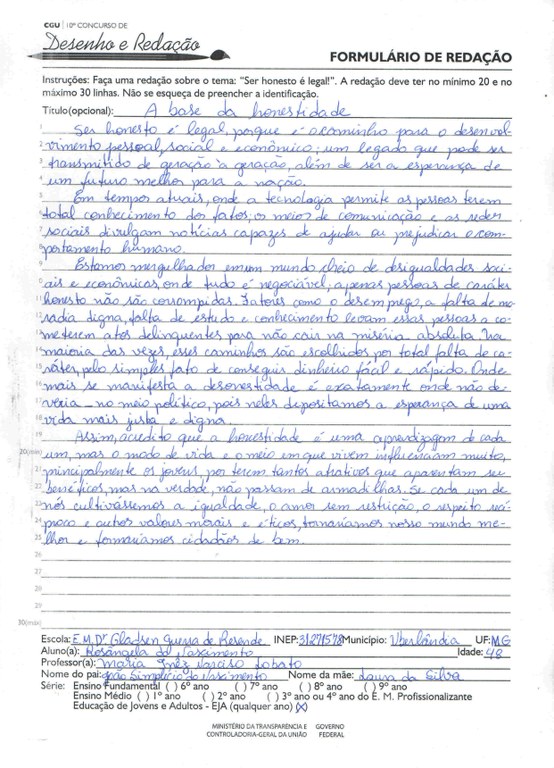 CGU | 10º CONCURSO DE
Desenho e Redação
FORMULÁRIO DE REDAÇÃO
Instruções: Faça uma redação sobre o tema: "Ser honesto é legal!". A redação deve ter no mínimo 20 e no
máximo 30 linhas. Não se esqueça de preencher a identificação.
Título(opcional): A base da honestidade
1 Ser honesto é legal, porque é o caminho para o desenvol-
2 vimento pessoal, social e econômico; um legado que pode ser
3 transmitido de geração à geração, além de ser a esperança de
4 um futuro melhor para a nação.
5 Em tempos atuais, onde a tecnologia permite as pessoas terem
6 total conhecimento dos fatos, os meios de comunicação e as redes
7 sociais divulgam notícias capazes de ajudar ou prejudicar o com-
8 portamento humano.
9 Estamos mergulhados em um mundo cheio de desigualdades soci-
10 ais e econômicas, onde tudo é negociável, apenas pessoas de caráter
11 honesto não são corrompidas. Fatores como o desemprego, a falta de mo-
12 radia digna, falta de estudo e conhecimento levam essas pessoas a co-
13 meterem atos delinquentes para não cair na miséria absoluta. Na
14 maioria das vezes, esses caminhos são escolhidos por total falta de ca-
15 ráter, pelo simples fato de conseguir dinheiro fácil e rápido. Onde
16 mais se manifesta a desonestidade é exatamente onde não de-
17 veria _ no meio político, pois neles depositamos a esperança de uma
18 vida mais justa e digna.
19 Assim, acredito que a honestidade é uma aprendizagem de cada
20(min) um, mas o modo de vida e o meio em que vivem influenciam muito,
21 principalmente os jovens, por terem tantos atrativos que aparentam ser
22 benéficos, mas na verdade, não passam de armadilhas. Se cada um de
23 nós cultivássemos a igualdade, o amor sem restrição, o respeito recí-
24 proco e outros valores morais e éticos, tornaríamos nosso mundo me-
25 lhor e formaríamos cidadãos de bem.
26
27
28
29
30(máx)
Escola: E.M.Dr Gladsen Guerra de Rezende INEP: 31271578 Município: Uberlândia UF: MG
Aluno(a): Rosângela do Nascimento Idade: 48
Professor(a): Maria Inêz Narciso Lobato
Nome do pai: João Simplício do Nascimento Nome da mãe: Laura da Silva
Série: Ensino Fundamental ( ) 6º ano ( ) 7º ano ( ) 8º ano ( ) 9º ano
Ensino Médio ( ) 1º ano ( ) 2º ano ( ) 3º ano ou 4º ano do E. M. Profissionalizante
Educação de Jovens e Adultos - EJA (qualquer ano) (x)
MINISTÉRIO DA TRANSPARÊNCIA E GOVERNO
CONTROLADORIA-GERAL DA UNIÃO FEDERAL